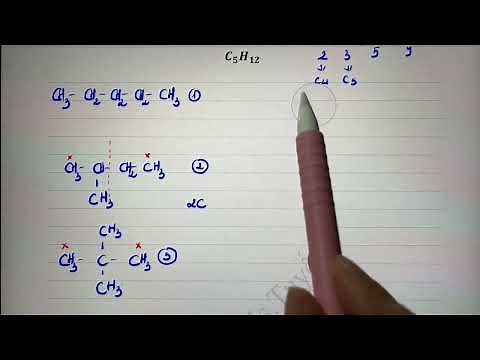 C₅H₁₂
2 3 5 9
⇓ ⇓
C₄ C₅
CH₃ - CH₂ - CH₂ - CH₂ - CH₃ ①
x x
CH₃ - CH - CH₂ - CH₃ ②
CH₃
2C
CH₃
x x
CH₃ - C - CH₃ ③
CH₃